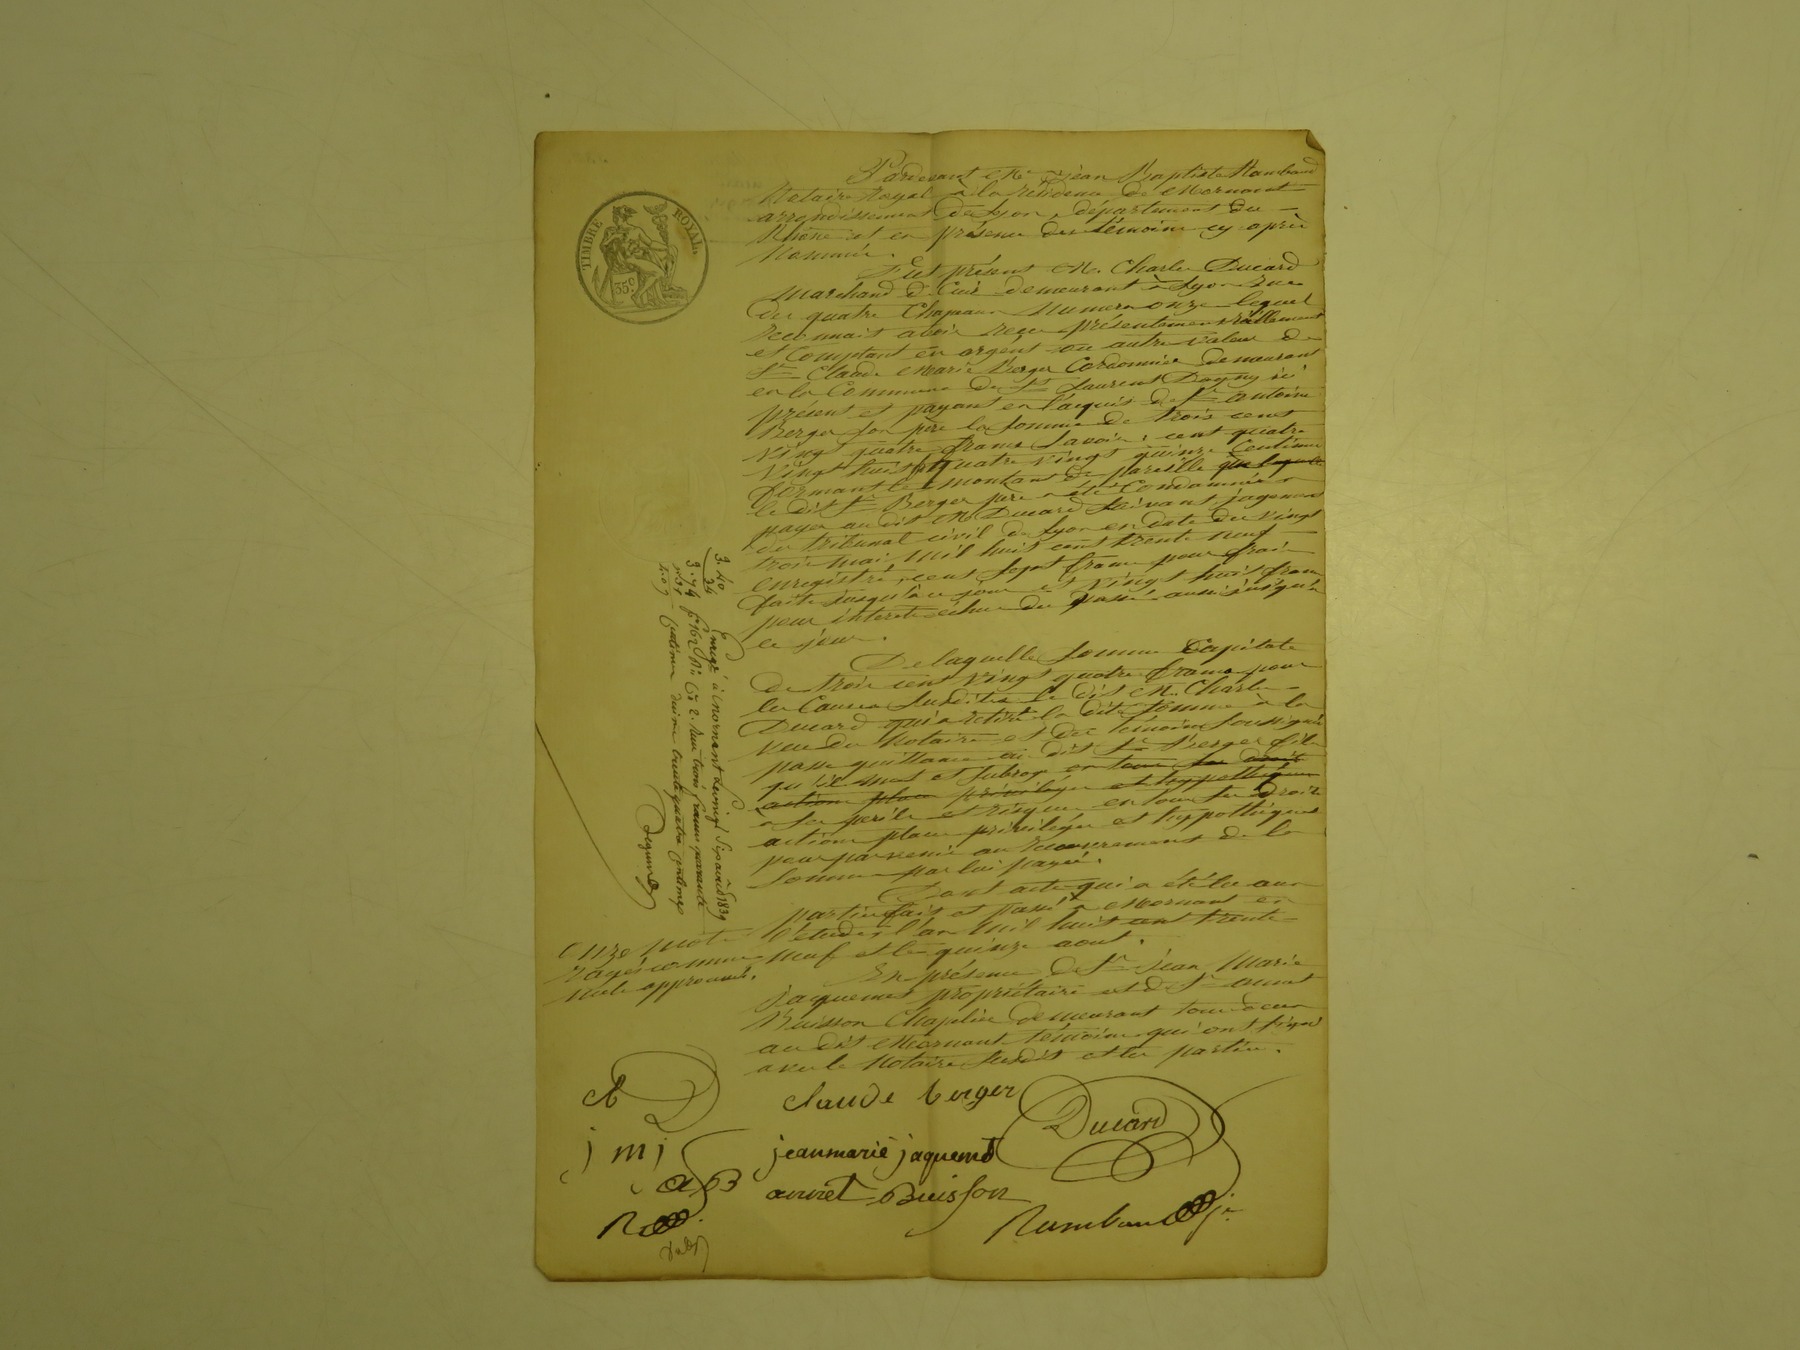 TIMBRE ROYAL
35c
Pardevant Me Jean Baptiste Rambaud
Notaire Royal à la résidence de Mornant
arrondissement de Lyon, département du
Rhône et en présence des témoins cy après
Nommés.
Fut présent M. Charles Ducard
Marchand de Cuir demeurant à Lyon rue
des quatre Chapeaux Numero onze lequel
reconnait avoir reçu présentement réellement
et Comptant en argent ou autre valeur de
Sr Claude Marie Berger Cordonnier demeurant
en la Commune de St Laurent Dagny ici
présent et payant en l'acquit de Sr antoine
Berger son père la somme de trois cent
vingt quatre francs savoir: cent quatre
vingt huit f quatre vingt quinze Centimes
formant le montant de pareille que laquelle
le dit Sr Berger père a été Condamné à
payer au dit M. Ducard suivant jugement
du tribunal civil de Lyon en date du vingt
trois mai mil huit cent trente neuf
enregistré, cent sept francs pour frais
faits jusqu'à ce jour et vingt huit francs
pour intérêts échus du passé aussi jusqu'à
ce jour.
De laquelle somme Capitale
de trois cent vingt quatre francs pour
les Causes susdites le dit M. Charles
Ducard qui a retiré la dite somme à la
vue du Notaire et des témoins soussignés
passe quittance au dit Sr Berger fils
qu'il met et subroge en tous ses droits
actions places privilèges et hypothèques
à ses périls et risques en tous ses droits
actions places privilèges et hypothèques
pour parvenir au recouvrement de la
somme par lui payée.
Dont acte qui a été lu aux
parties fait et passé à Mornant en
l'étude l'an mil huit cent trente
neuf et le quinze aout.
En présence de Sr jean Marie
jaquemot propriétaire et de Sr annet
Buisson Chapelier demeurant tous deux
au dit Mornant témoins qui ont signé
avec le Notaire susdit et les parties.
onze mots
rayés comme
nuls approuvés.
3. 40
34
3. 74
Enregé à Mornant le vingt six août 1839
fo 162 Ro Ce 2. Reçu trois francs quarante
centimes dixième trente quatre centimes
cb D
claude berger
Ducard
j m j
jeanmarie jaquemot
a B
annet Buisson
R
Rambaud jn